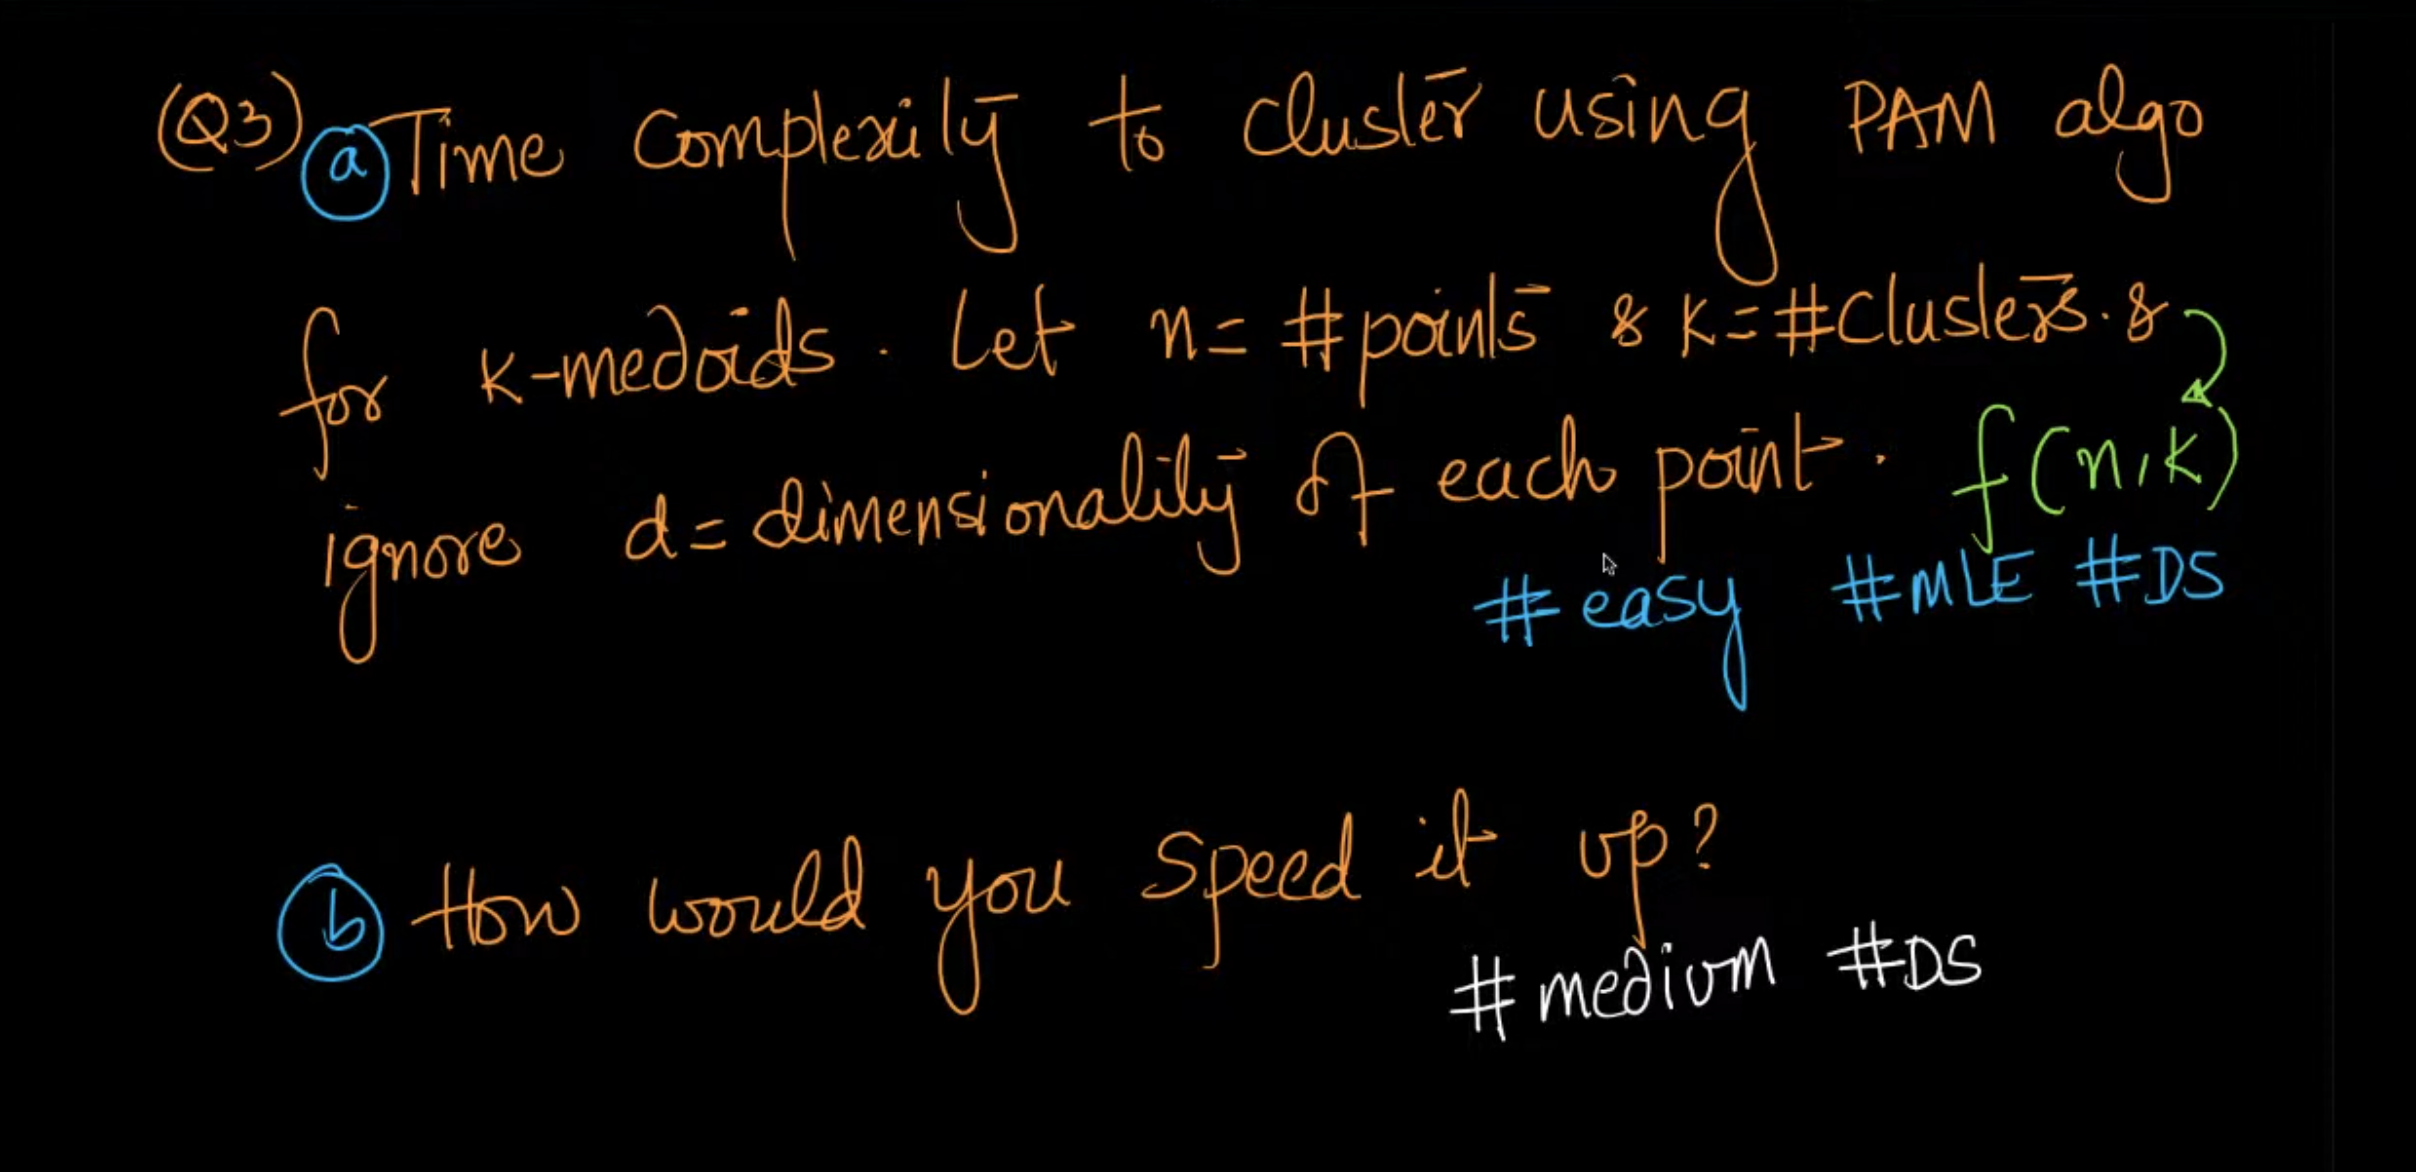 (Q3) a Time complexity to cluster using PAM algo
for k-medoids. Let n = #points & k = #clusters. &
ignore d = dimensionality of each point. f(n,k)
#easy #MLE #DS
b How would you speed it up?
#medium #DS